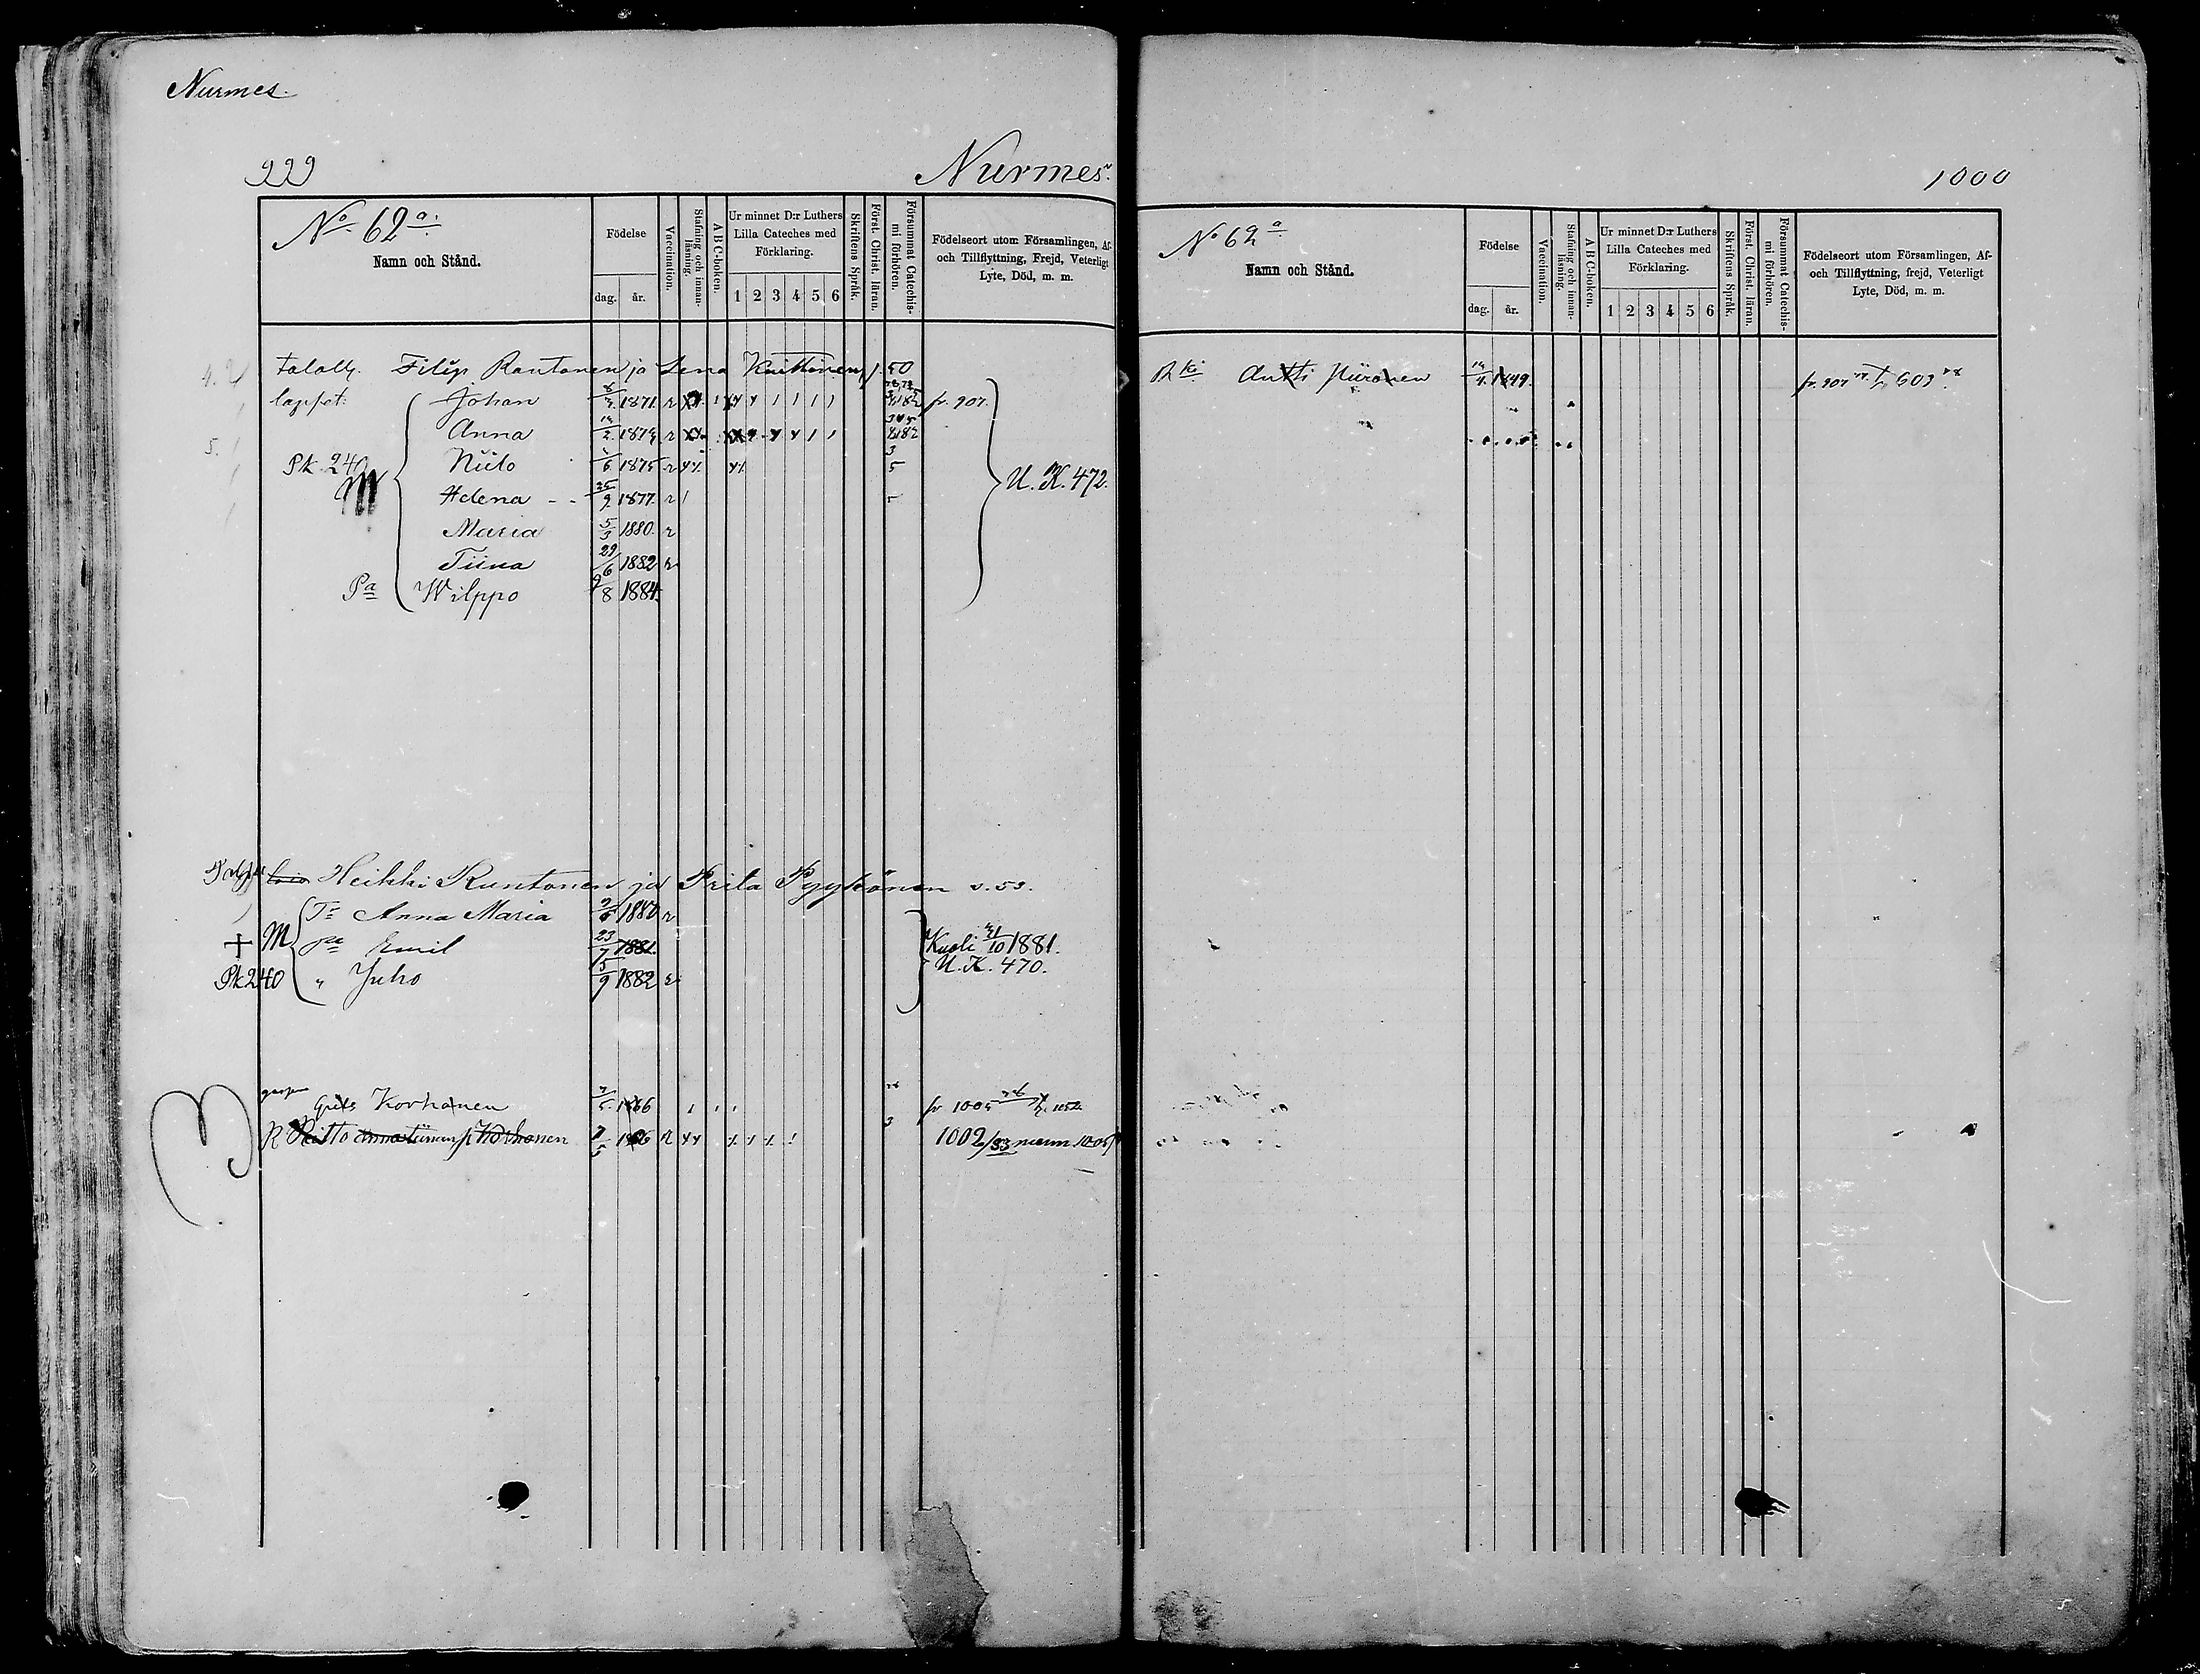 Nurmes.
999
Nurmes.
No 62 a.
Namn och Stånd.
Födelse
dag. år.
Vaccination.
Stafning och innanläsning.
A B C-boken.
Ur minnet D:r Luthers
Lilla Cateches med
Förklaring.
1 2 3 4 5 6
Skriftens Språk.
Först. Christ. läran.
Försummat Catechismi förhören.
Födelseort utom Församlingen, Af-
och Tillflyttning, Frejd, Veterligt
Lyte, Död, m. m.
Filip Rantonen ja Lena 50
lapset: Johan 1871. r fr. 907.
Anna r
Pk. 240 Niilo 1875 r 5
M Helena 25/9 1877. r U. K. 472.
Maria 5/3 1880. r
Tiina 29/6 1882 r
Pa Wilppo 9/8 1884.
Heikki Runtonen ja Priita Pyykönen s. 53.
Tr Anna Maria 1880 r
+ M pa Emil 23/7 1881. Kuoli 21/10 1881.
Pk 240 " Juho 5/9 1882 r U. K. 470.
Korhonen 1866 fr 1005
R Riitto Korhonen 7/5 R 1002/83 1005
1000
No 62 a
Namn och Stånd.
Födelse
dag. år.
Vaccination.
Stafning och innanläsning.
A B C-boken.
Ur minnet D:r Luthers
Lilla Cateches med
Förklaring.
1 2 3 4 5 6
Skriftens Språk.
Först. Christ. läran.
Försummat Catechismi förhören.
Födelseort utom Församlingen, Af-
och Tillflyttning, frejd, Veterligt
Lyte, Död, m. m.
Antti Piironen 1849. fr. 907 603